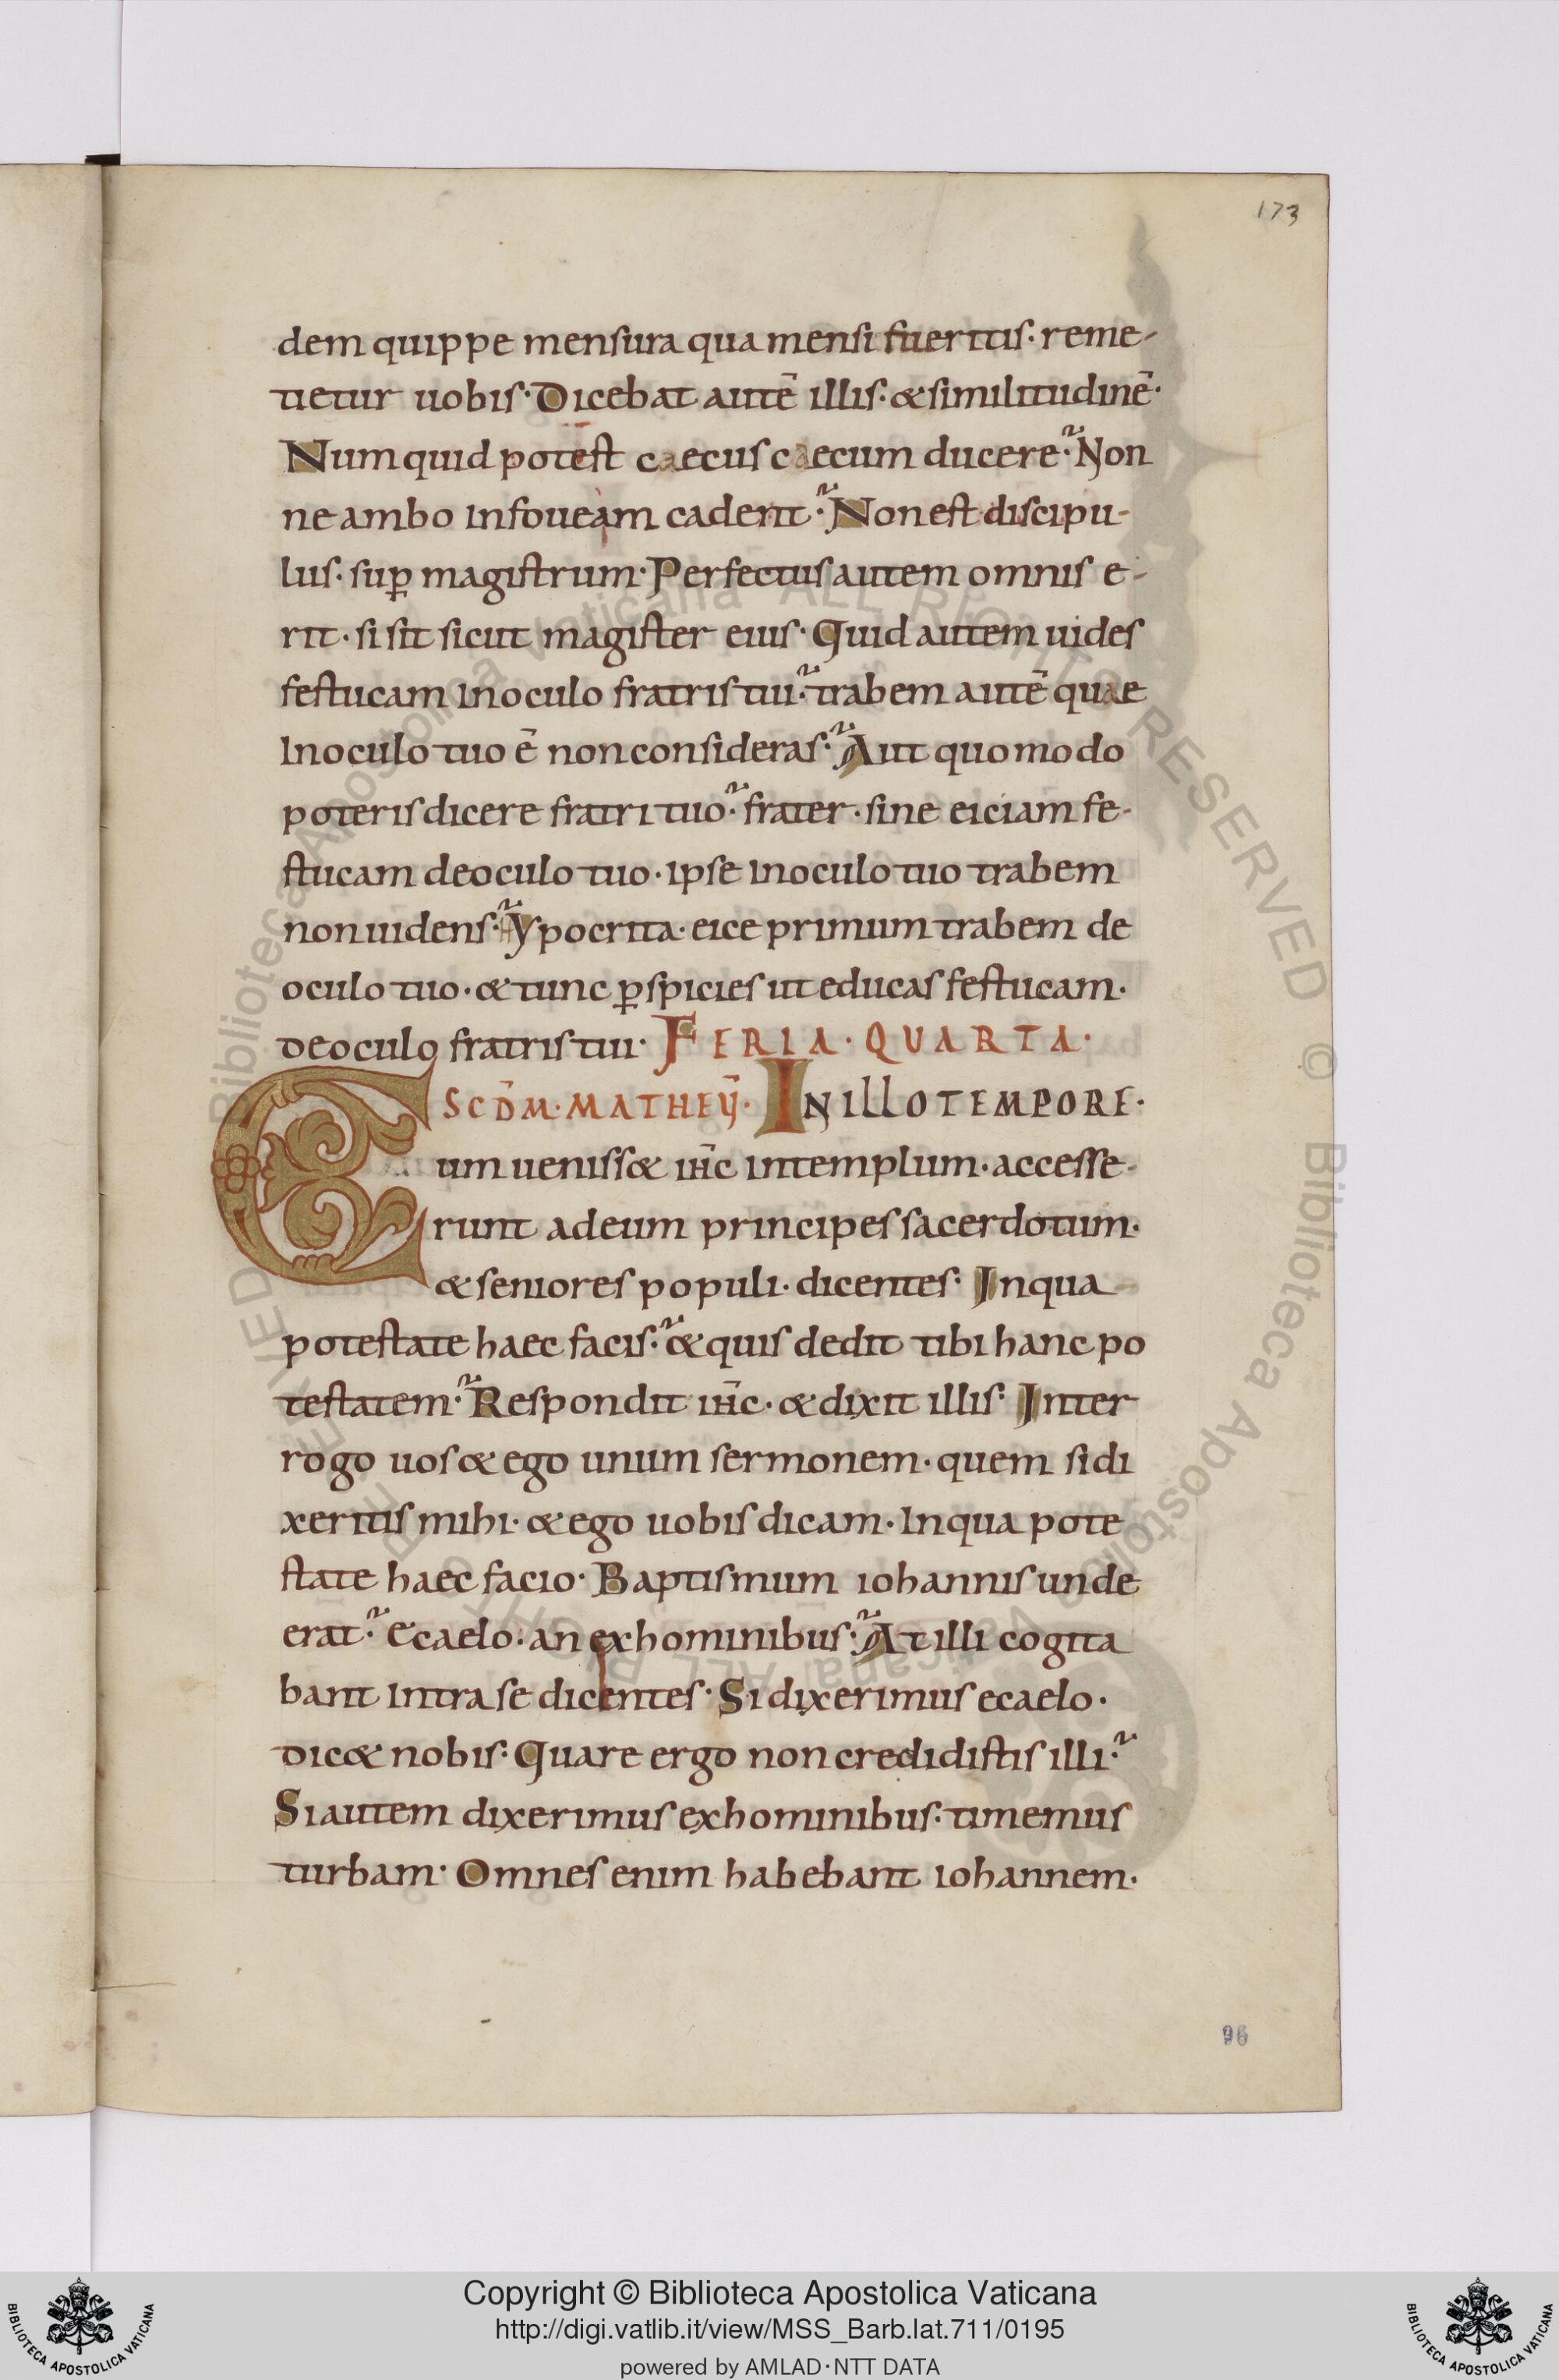 173
dem quippe mensura qua mensi fueritis· reme-
tietur uobis· Dicebat autē illis· & similitudinē·
Numquid potest caecus caecum ducere? Non
ne ambo in foueam cadent? Non est discipu-
lus· suꝑ magistrum· Perfectus autem omnis e-
rit· si sit sicut magister eius· Quid autem uides
festucam in oculo fratris tui? trabem autē quae
in oculo tuo ē non consideras? Aut quomodo
poteris dicere fratri tuo? frater· sine eiciam fe-
stucam de oculo tuo· ipse in oculo tuo trabem
non uidens? Ypocrita· eice primum trabem de
oculo tuo· & tunc ꝑspicies ut educas festucam·
de oculo fratris tui· FERIA· QUARTA·
SCD̄M· MATHEȲ· IN ILLO TEMPORE·
Cum ueniss& ih̄c in templum· accesse-
runt ad eum principes sacerdotum·
& seniores populi· dicentes· In qua
potestate haec facis? & quis dedit tibi hanc po
testatem? Respondit ih̄c· & dixit illis· Inter
rogo uos & ego unum sermonem· quem si di
xeritis mihi· & ego uobis dicam· In qua pote
state haec facio· Baptismum iohannis unde
erat? e caelo· an ex hominibus? At illi cogita
bant intra se dicentes· Si dixerimus e caelo·
dic& nobis· Quare ergo non credidistis illi?
Si autem dixerimus ex hominibus· timemus
turbam· Omnes enim habebant iohannem·
96
Copyright © Biblioteca Apostolica Vaticana
http://digi.vatlib.it/view/MSS_Barb.lat.711/0195
powered by AMLAD·NTT DATA
BIBLIOTECA APOSTOLICA VATICANA
BIBLIOTECA APOSTOLICA VATICANA